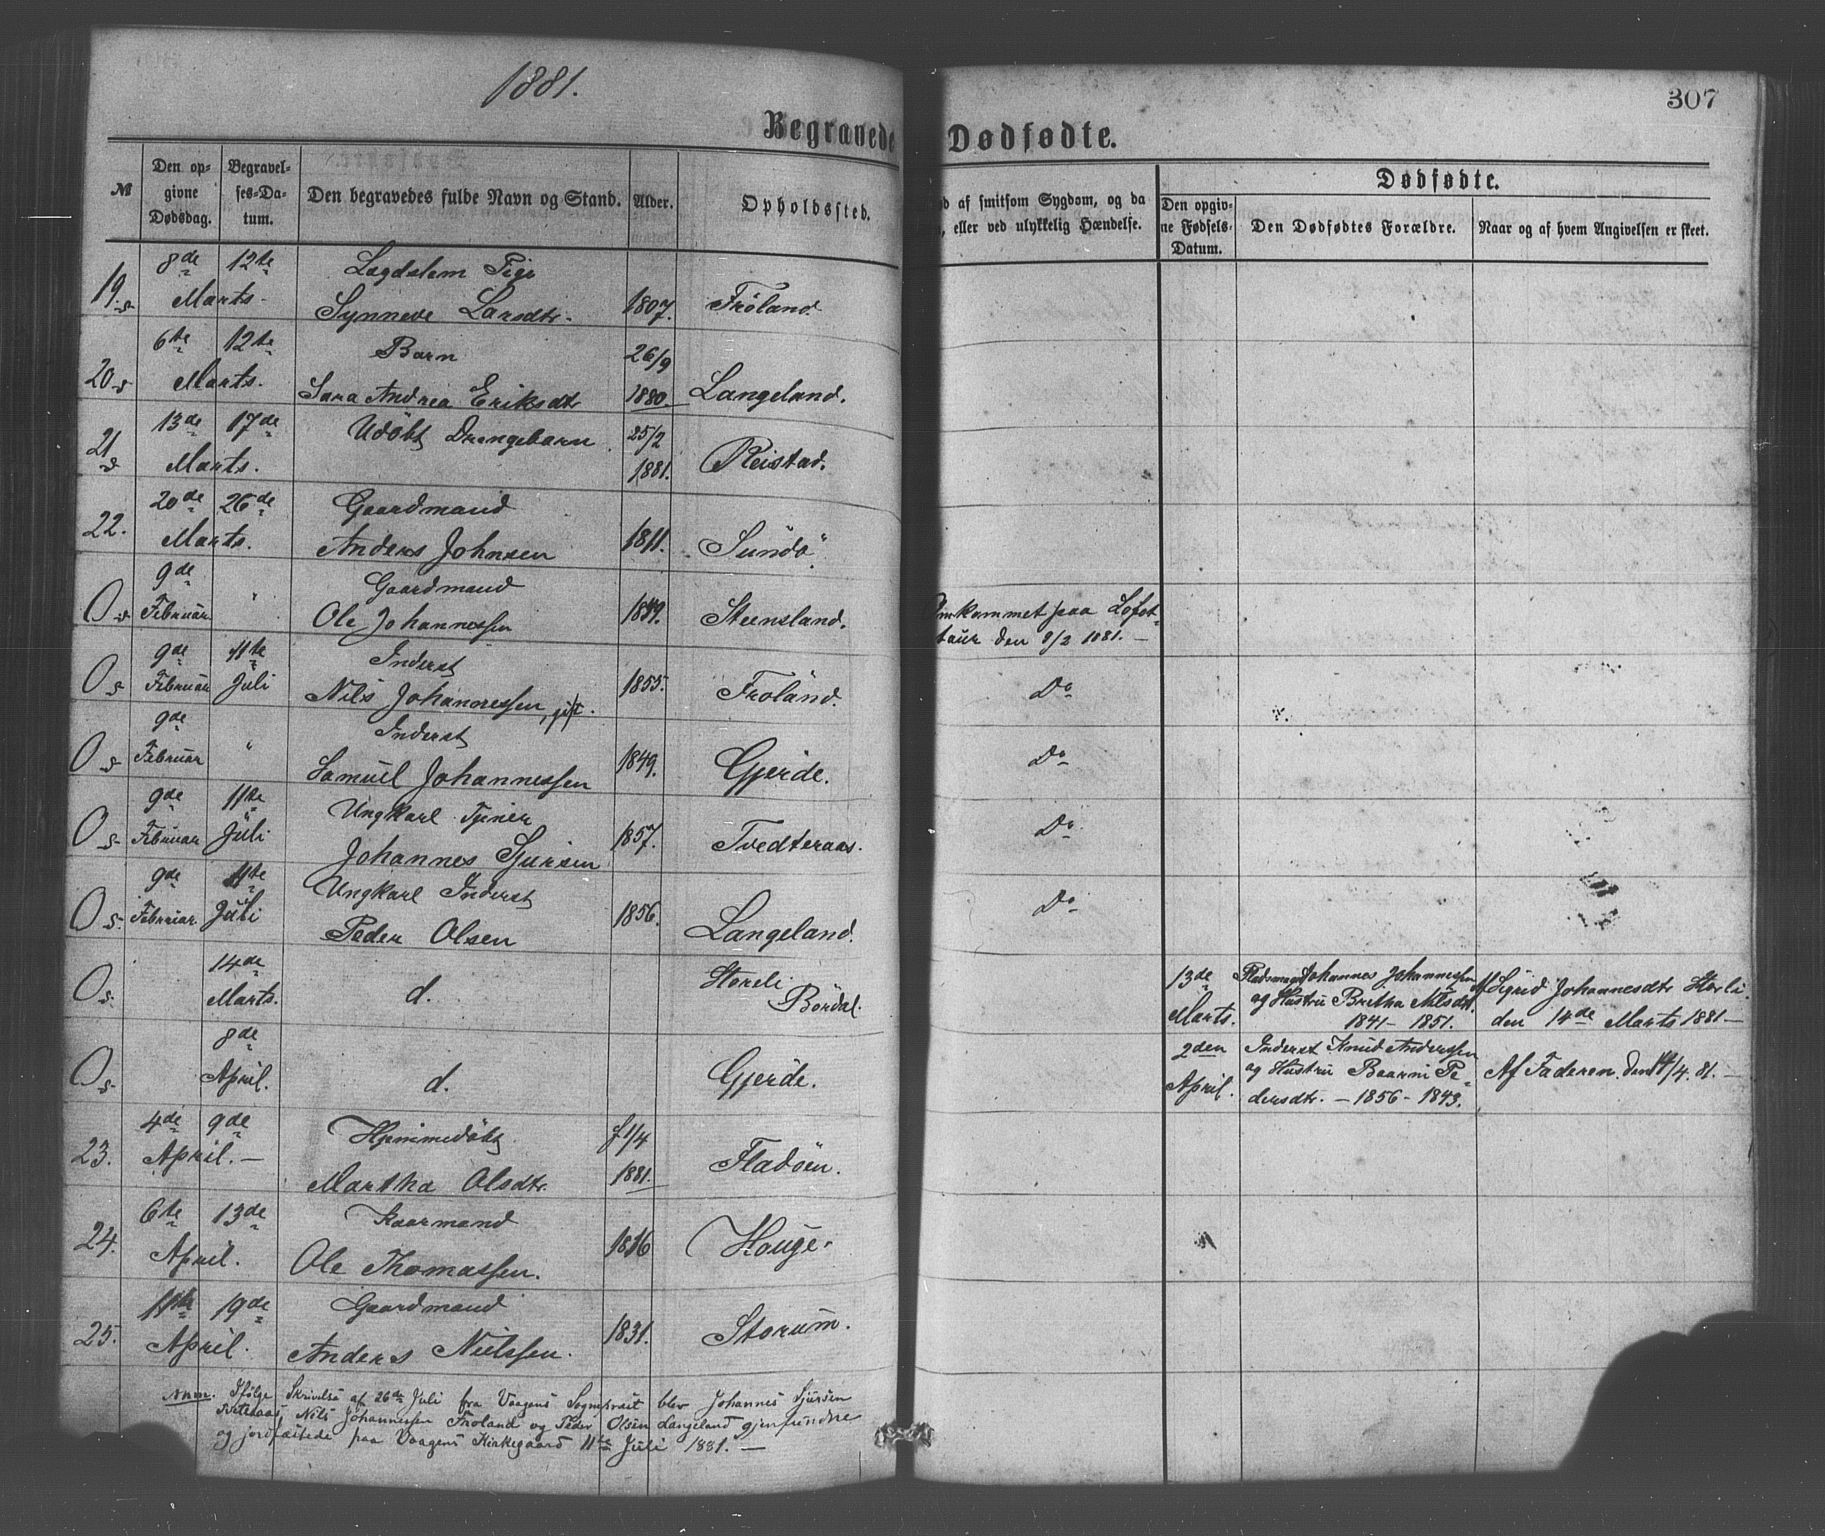 1881.
307
Begravede
Dødfødte.
№
Den op-
givne
Dødsdag.
Begravel-
ses-Da-
tum.
Den begravedes fulde Navn og Stand.
Alder.
Opholdssted.
d af smitsom Sygdom, og da
, eller ved ulykkelig Hændelse.
Dødfødte.
Den opgiv-
ne Fødsels-
Datum.
Den Dødfødtes Forældre.
Naar og af hvem Angivelsen er skeet.
8de 12te Lægdslem Pige
19. s. Marts. Synneve Larsdtr. 1807. Frøland.
6te 12te Barn 26/9
20. s Marts. Sara Andrea Eriksdtr 1880. Langeland.
13de 17de Udöbt Drengebarn 25/2
21 s Marts. 1881. Reistad.
20de 26de Gaardmand
22. Marts. Anders Johnsen 1811. Sundö.
9de Gaardmand
O s Februar " Ole Johannessen 1849. Steensland. Omkommet paa Lofot-
taur den 9/2 1881. —
9de 11te Inderst
O s. Februar Juli Nils Johannessen, gift. 1855. Froland. Do
9de Inderst
O s Februar " Samuel Johannessen 1849. Gjerde. Do
9de 11te Ungkarl Tjener
O s. Februar Juli Johannes Sjursen 1857. Tvedteraas. Do
9de 11te Ungkarl Inderst
O s. Februar Juli Peder Olsen 1856. Langeland. Do
14de Storeli 13de Pladsmand Johannes Johannessen Af Sigrid Johannesdtr Storli
O s. Marts. d. Bördal. Marts. og Hustru Britha Nilsdtr den 14de Marts 1881 —
1841 – 1851.
8de 2den Inderst Knud Anderssen
O s. April. d. Gjerde. April. og Hustru Baarni Pe- Af Faderen den 14/4. 81. —
dersdtr. – 1856 – 1843.
4de 9de Hjemmedöbt f 1/4
23. April. — Martha Olsdtr. 1881. Fladöen.
6te 13de Kaarmand
24. April. Ole Thomassen. 1816 Houge.
11te 19de Gaardmand
25. April. Anders Nielssen. 1831. Storum.
Anm. Ifölge Skrivelse af 26de Juli fra Vaagens Sognepræst blev Johannes Sjursen
Tvetteraas, Nils Johannessen Froland og Peder Olsen Langeland gjenfundne
og jordfæstede paa Vaagens Kirkegaard 11te Juli 1881. —